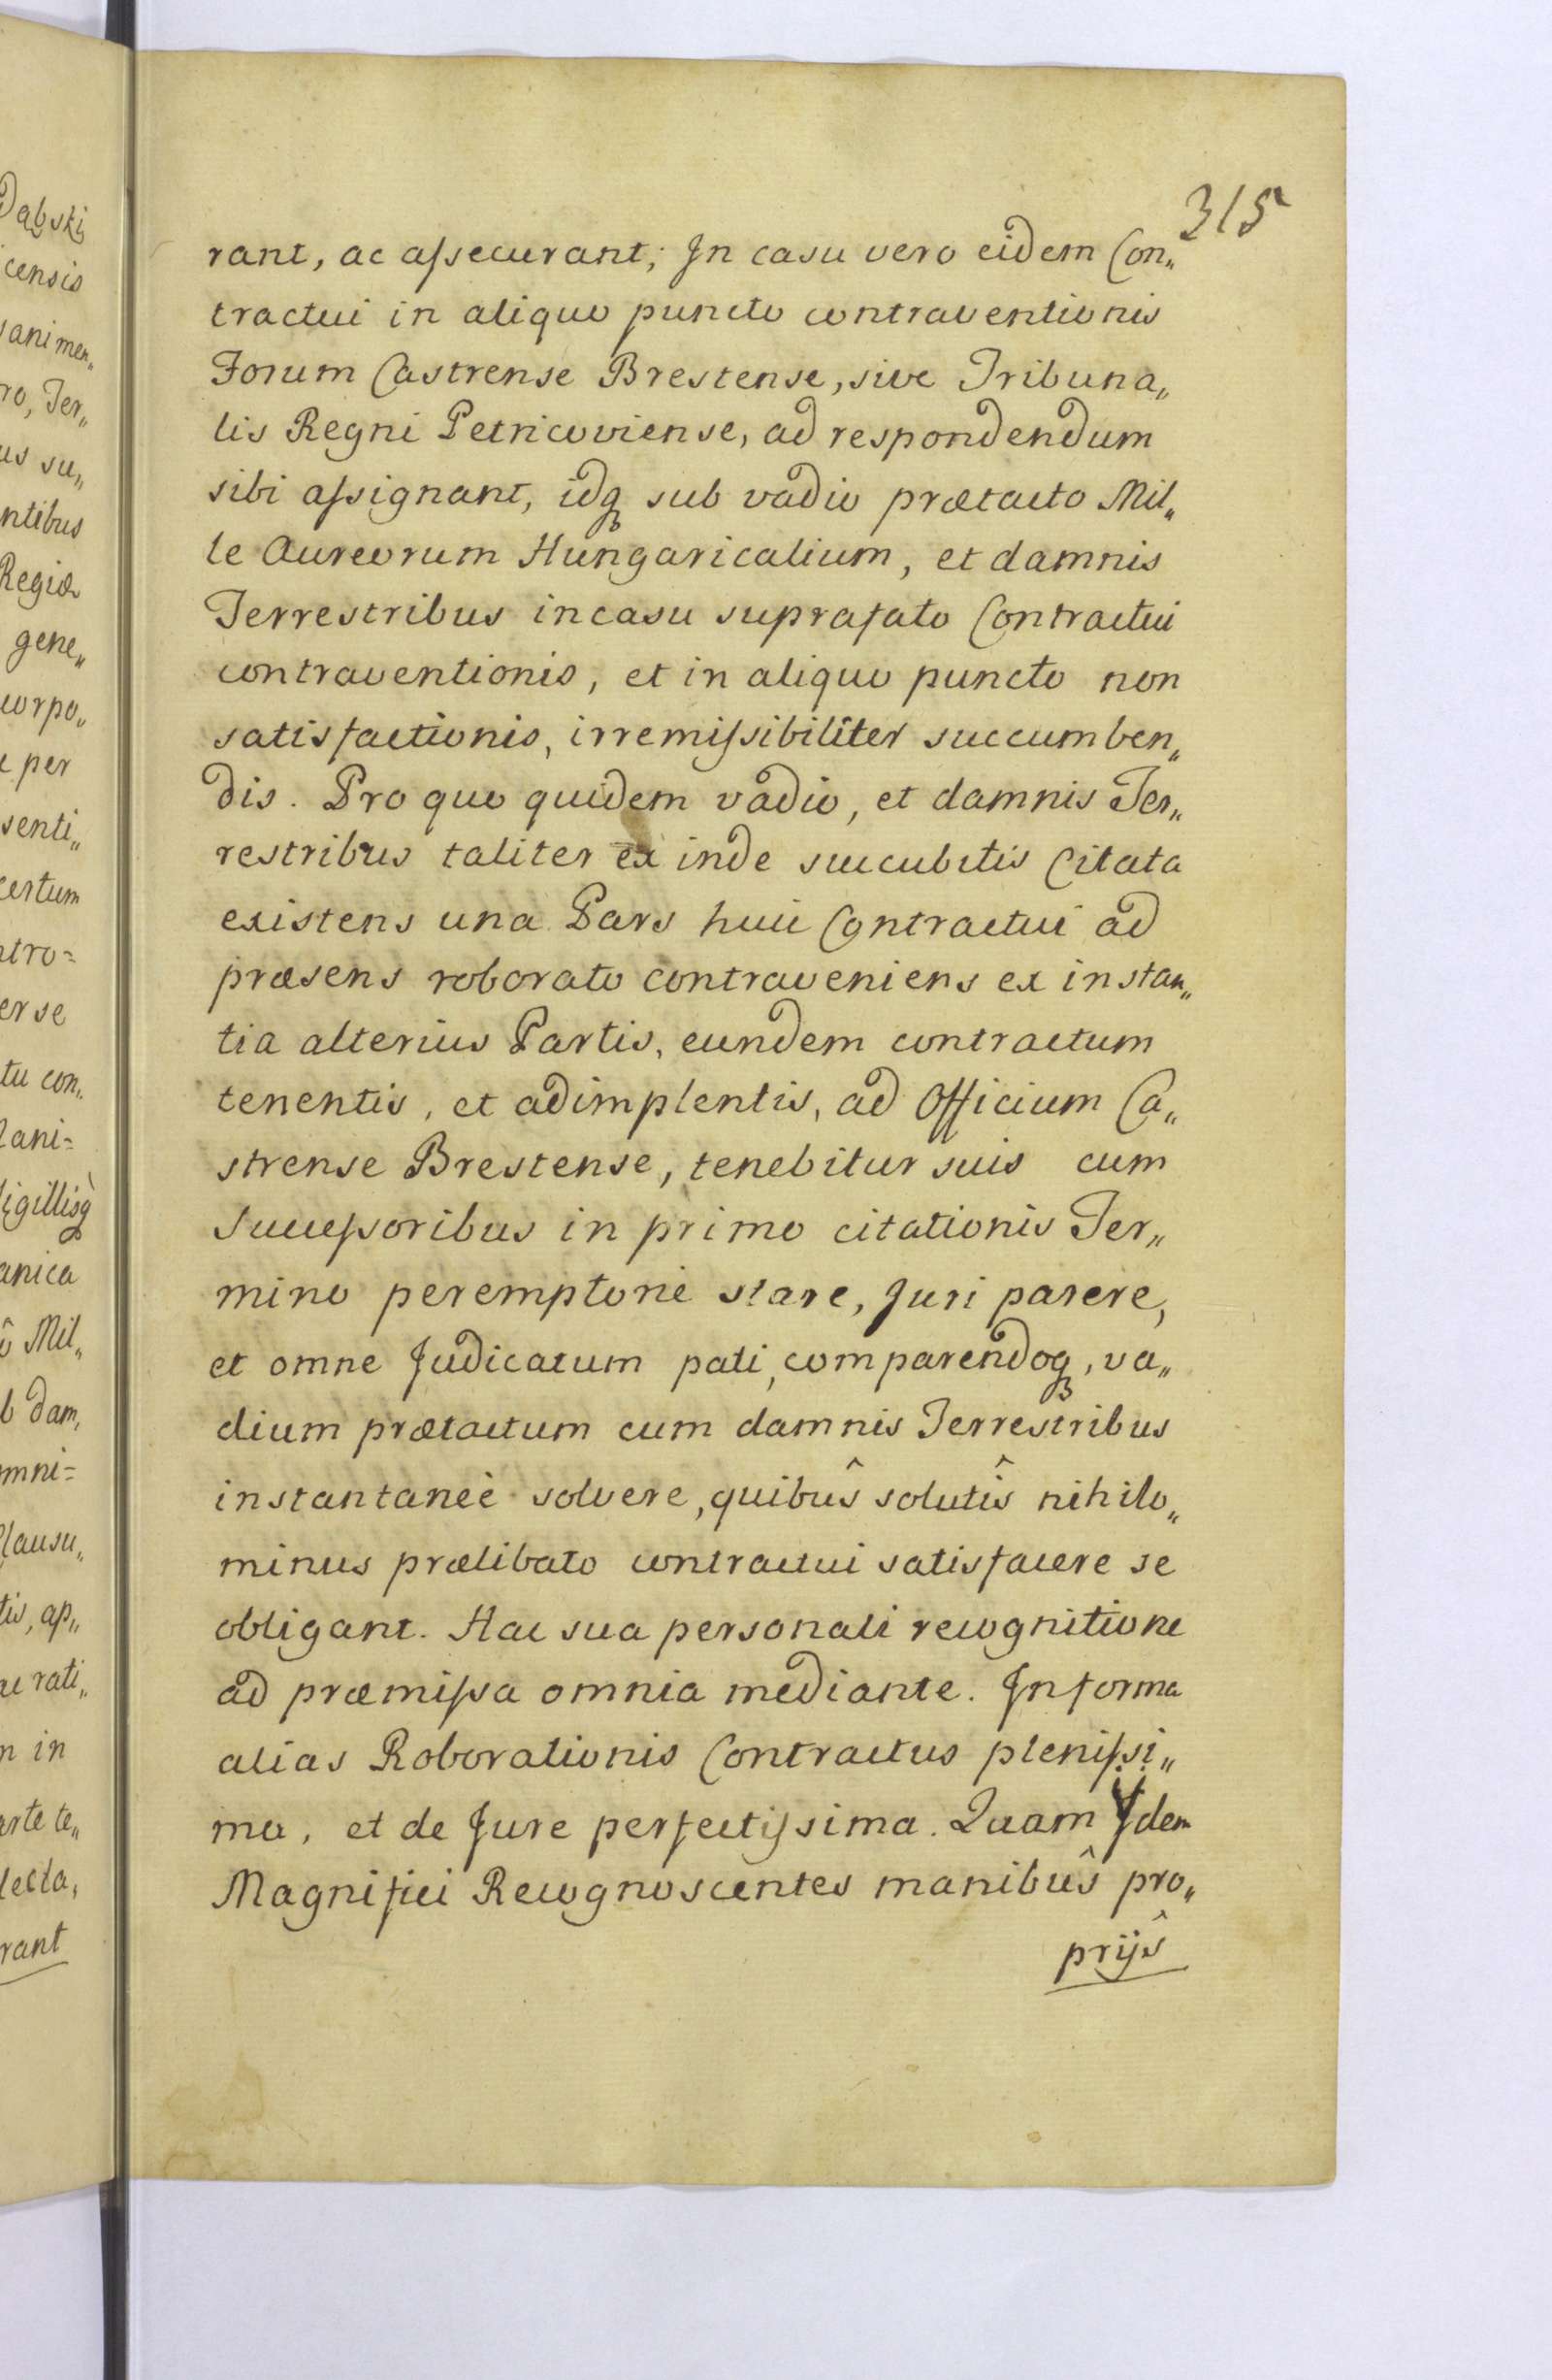 315
rant, ac assecurant; In casu vero eidem Con„
tractui in aliquo puncto contraventionis
Forum Castrense Brestense, sive Tribuna„
lis Regni Petricoviense, ad respondendum
sibi assignant, idq sub vadio prætacto Mil„
le Aureorum Hungaricalium, et damnis
Terrestribus in casu suprafato Contractui
contraventionis, et in aliquo puncto non
satisfactionis, irremissibiliter succumben„
dis. Pro quo quidem vadio, et damnis Ter„
restribus taliter ex inde succubitis Citata
existens una Pars huic Contractui ad
præsens roborato contraveniens ex instan„
tia alterius Partis, eundem contractum
tenentis, et adimplentis, ad Officium Ca„
strense Brestense, tenebitur suis cum
Successoribus in primo citationis Ter„
mino peremptorie stare, Juri parere,
et omne Judicatum pati, comparendoq, va„
dium prætactum cum damnis Terrestribus
instantaneè solvere, quibus̑ solutis̑ nihilo„
minus prælibato contractui satisfacere se
obligant. Hac sua personali recognitione
ad præmissa omnia mediante. In forma
alias Roborationis Contractus plenissi„
ma, et de Jure perfectissima. Quam Ydem
Magnifici Recognoscentes manibûs pro„
prijŝ
Dąbski
censis
animen„
ro, Ter„
us su„
ntibus
Regiæ
gene„
corpo„
per
senti„
certum
ntro=
er se
tu con„
ani=
igillisq̀
anica
Mil„
dam„
mni=
lausu„
tis, ap„
rati„
n in
arte te„
lecta,
rant